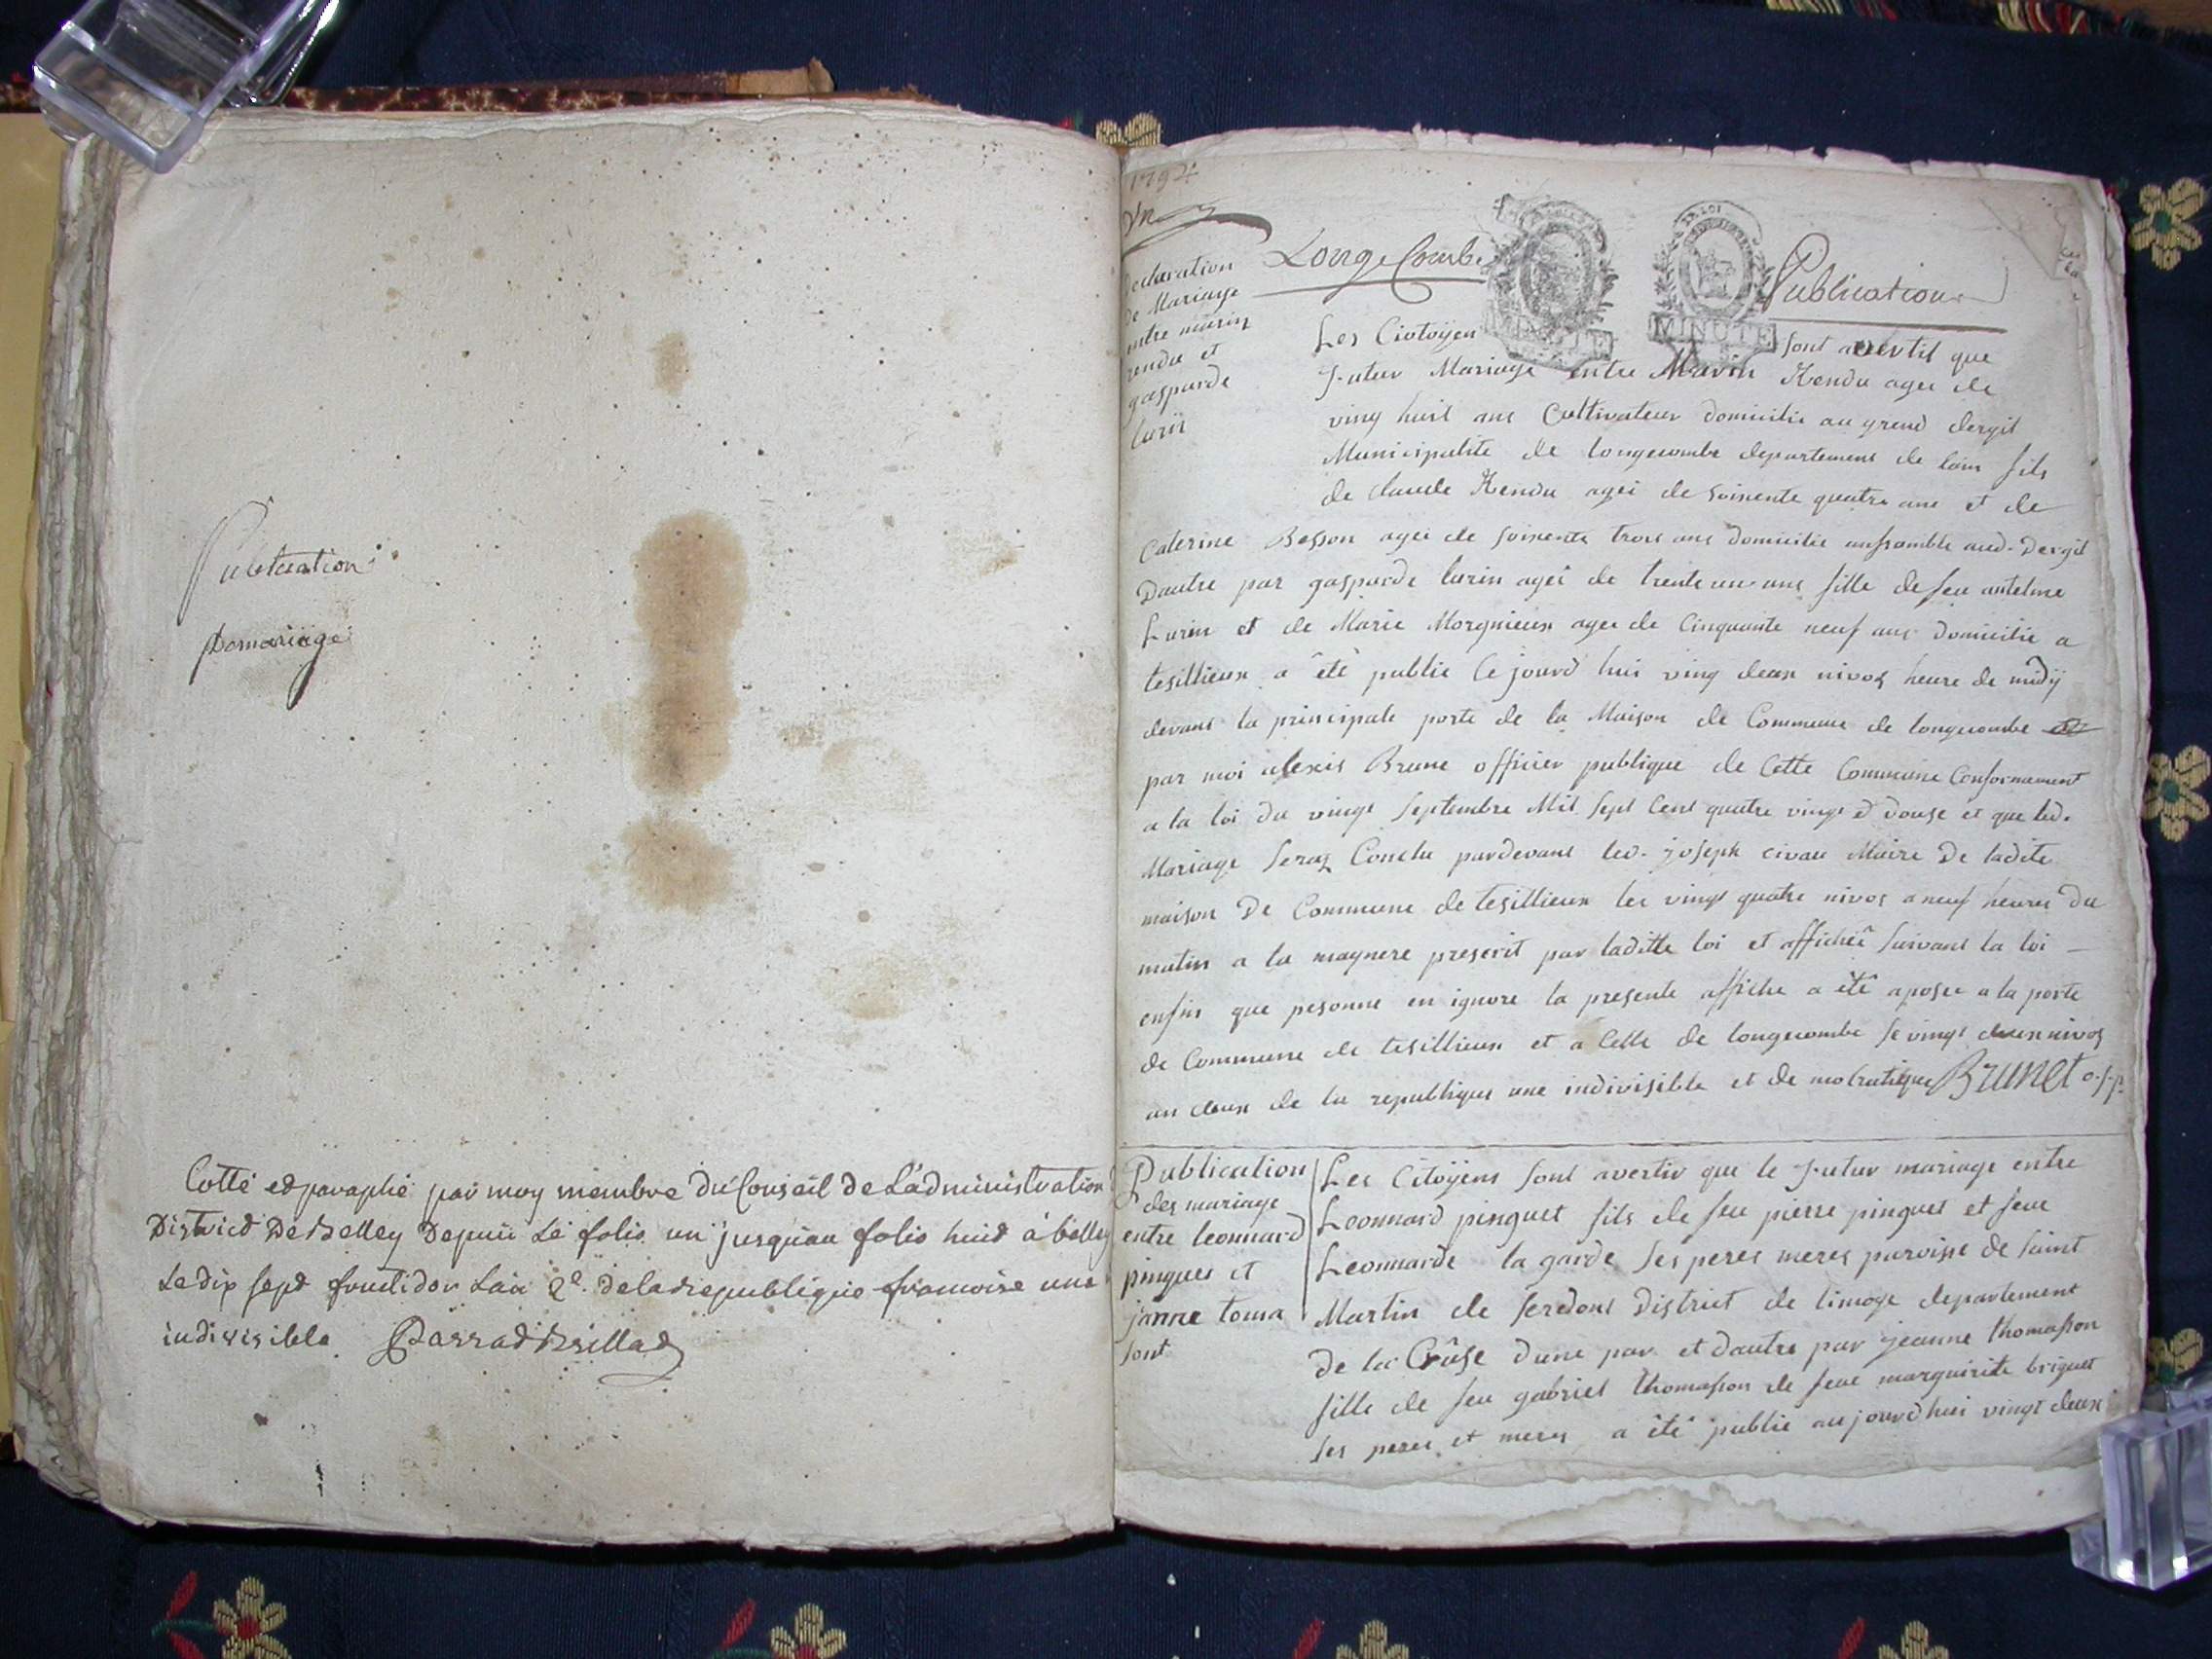 Publication
Demariage
Cotté edparaphé par moy membre du Conseil de L'administration
District De Belley Depuis Lé folio un jusquau folio huid a belley
Le dix sept fructidor Lan 2e. delarepublique francoise une
indivisible
1794
un
Longecombe
Publication
Declaration
de Mariage
entre marin
rendu et
gasparde
lurin
MINUTE
MINUTE
Les Ciotoyen sont avertit que
Futur Mariage entre Marin Rendu agee de
ving huit ans Cultivateur domicilie au grend dergit
Municipalite de longecombe departement de lain fils
de claude Rendu agei de soixente quatre ans et de
Caterine Besson agei de soixente trois ans domicilie ansramble aud. Dergit
Dautre par gasparde lurin agei de trente un ans fille de feu antelme
Lurin et de Marie Morgnieux agee de Cinquante neuf ans domicilie a
tesillieux a été publie Ce jourd hui ving deux nivos heure de midÿ
devant la principale porte de la Maison de Commune de longecombe
par moi alexis Brune officier publique de Cette Commune Conformement
a la loi du vingt Septembre Mil Sept Cent quatre vingt d douse et que led.
Mariage Seraz Conclu pardevant led. joseph civau Maire De ladite
maison De Commune de tesillieux les vingt quatre nivos a neuf heures Du
matin a la maynere prescrit par laditte loi et affichéé suivant la loi
enfin que pesonne en ignore la presente affiche a été aposee a la porte
de Commune de tesillieux et a Celle de longecombe le vingt deux nivos
an deux de la republique une indivisible et de mocratique Brunet o.f.p.
Publication
des mariage
entre leonnard
pingues et
janne toma
sont
Les Citoÿens sont avertir que le Futur mariage entre
Leonnard pinguet fils de feu pierre pinguet et feue
Leonnarde la garde ses peres meres paroisse de saint
Martin de feredons District de limoge departement
de la Crûse dune par et dautre par jeanne thomasson
fille de feu gabriel thomasson de feue marguirite briquet
ses peres et meres a été publie aujourdhui vingt deux